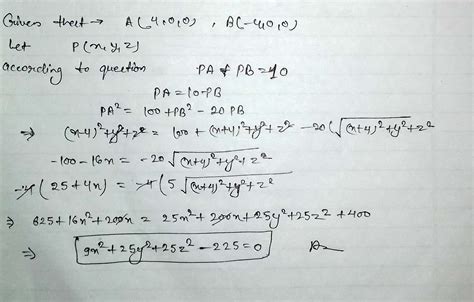 Given that → A(4,0,0) , B(-4,0,0)
Let P(x,y,z)
according to question PA + PB = 10
PA = 10-PB
PA² = 100+PB² - 20 PB
⇒ (x-4)²+y²+z² = 100 + (x+4)²+y²+z² - 20(√(x+4)²+y²+z²
-100-16x = -20√(x+4)²+y²+z²
-4(25+4x) = -4(5√(x+4)²+y²+z²
⇒ 625+16x²+200x = 25x²+200x+25y²+25z²+400
⇒ 9x²+25y²+25z²-225=0